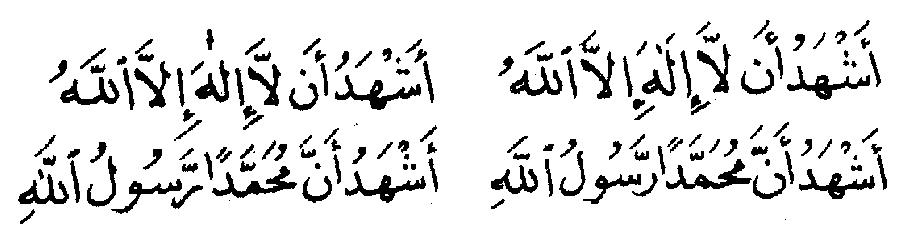 أَشْهَدُ أَن لَّا إِلَٰهَ إِلَّا ٱللَّهُ أَشْهَدُ أَن لَّا إِلَٰهَ إِلَّا ٱللَّهُ
أَشْهَدُ أَنَّ مُحَمَّدًا رَّسُولُ ٱللَّهِ أَشْهَدُ أَنَّ مُحَمَّدًا رَّسُولُ ٱللَّهِ